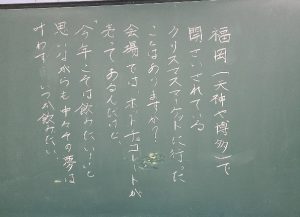 福岡(天神や博多)で
開さいされている
クリスマスマーケットに行った
ことはありますか?
会場ではホットチョコレートが
売ってあるんだけど、
“今年こそは飲みたい!”と
思いながらも中々その夢は
叶わず…いつか飲みたい